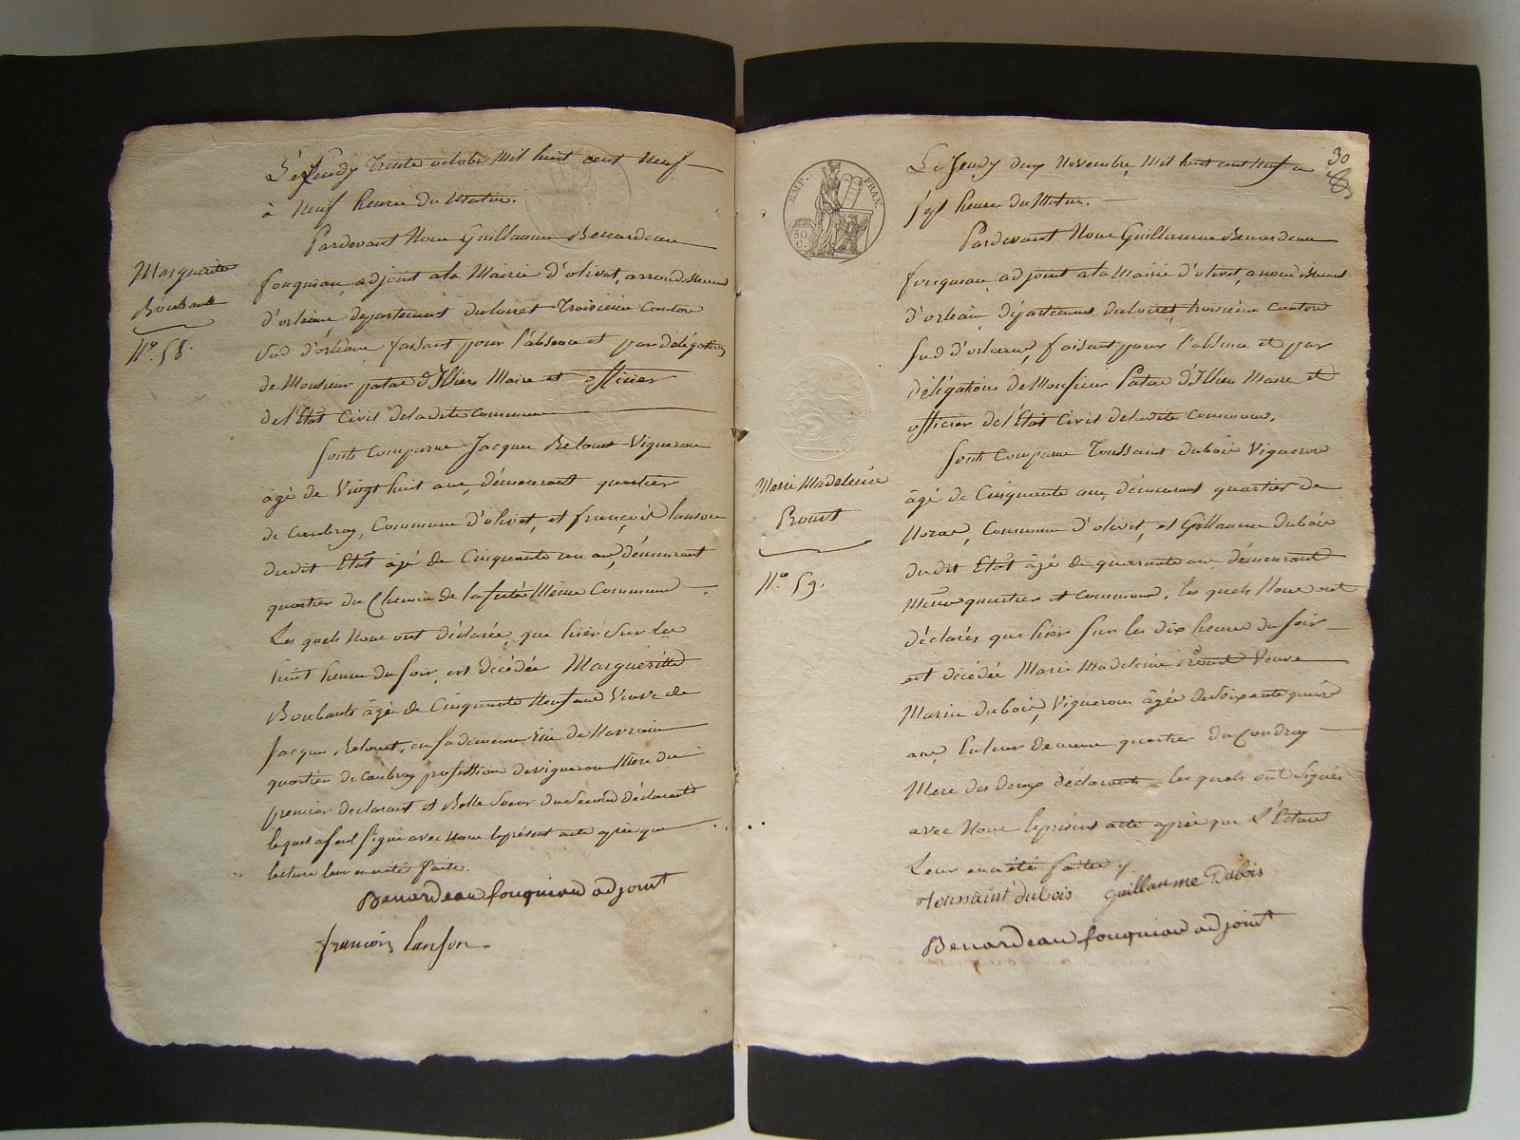 Le Lundy Trente octobre Mil huit cent Neuf
à Neuf heures du Matin.
Pardevant Nous Guillaume Benardeau
fouqniau adjoint a la Mairie d'olivet, arrondissement
d'orleans, departement du loiret Troisieme Canton
Sud d'orleans, faisant pour l'absence et par délégation
de Monsieur patas d'Illiers Maire et officier
de l'Etat Civil de ladite Commune
Marguerite
Boubault
N.º 58.
Sont Comparu Jacques Belouet Vigneron
âgé de Vingt huit ans, demeurant quartier
de Caubray, Commune d'olivet, et françois lanson
dudit Etat âgé de Cinquante un an, demeurant
quartier du Chemin de la ferté Même Commune
Les quels Nous ont déclarée, que hièr Sur les
huit heures du Soir, est décédée Margueritte
Boubault âgée de Cinquante Neuf ans Veuve de
Jacques Belouet, en sa demeure
quartier de Caubray profession de vigneron Mere du
premier declarant et Belle Soeur du Second déclarant
lequel a seul Signé avec Nous le présent acte après que
lecture leur en a été faite.
Benardeau fouqniau adjoint
françois lanson
30
EMP. FRAN.
Le Jeudy deux Novembre Mil huit cent Neuf a
Sept heures du Matin.
Pardevant Nous Guillaume Benardeau
fouqniau adjoint a la Mairie d'olivet, arrondissement
d'orleans, département du loiret, troisieme canton
Sud d'orleans, faisant pour l'absence et par
délégation de Monsieur Patas d'Illiers Maire et
officier de l'Etat Civil de ladite Commune.
Marie Madeleine
Proust
N.º 59.
Sont Comparu Toussaint dubois Vigneron
âgé de Cinquante ans, demeurant quartier de
Noras, Commune d'olivet, et Guillaume dubois
dudit Etat âgé de quarante ans demeurant
Même quartier et Commune. les quels Nous ont
déclarés que hier Sur les dix heures du Soir
est décédée Marie Madeleine Proust Veuve
Marin dubois, Vigneron âgée de Soixante quinze
ans, quartier du Coudray
Mere des deux déclarants les quels ont Signés
avec Nous le présent acte après que Lecture
Leur en a été faite
Toussaint dubois guillaume Dubois
Benardeau fouqniau adjoint